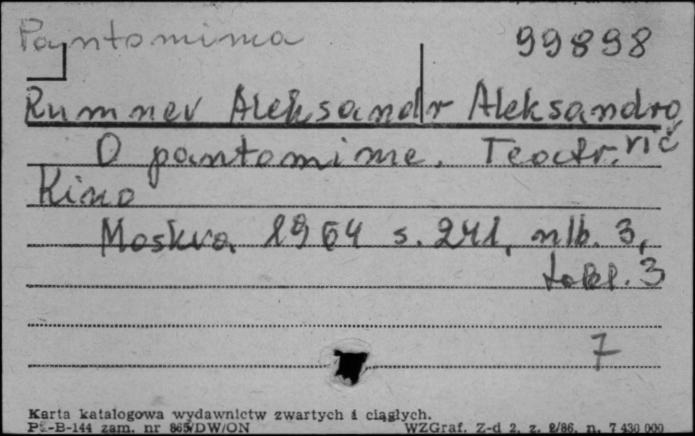 Pantomima 99898
Rumnev Aleksandr Aleksandro
vič
O pantomime. Teatr.
Kino
Moskva 1964 s. 241, nlb. 3,
tabl. 3
7
Karta katalogowa wydawnictw zwartych i ciągłych.
Pu-B-144 zam. nr 865/DW/ON WZGraf. Z-d 2, z. 2/86, n. 7 430 000